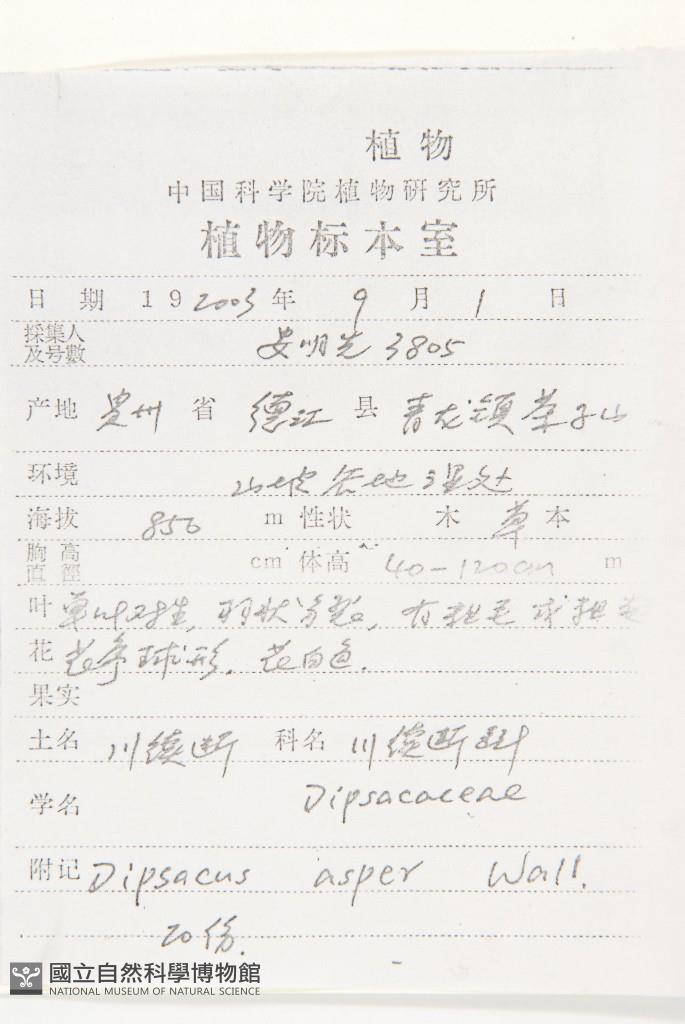 植物
中国科学院植物研究所
植物标本室
日 期 19 2003 年 9 月 1 日
採集人
及号數 安明先 3805
产地 贵州 省 德江 县 青龙镇
环境 山坡谷地湿处
海拔 850 m 性状 木 草 本
胸高
直徑 cm 体高 40-120cm m
叶 单叶对生, 羽状分裂, 有粗毛
花 花序球形. 花白色.
果实
土名 川续断 科名 川续断科
学名 Dipsacaceae
附记 Dipsacus asper Wall.
20份.
國立自然科學博物館
NATIONAL MUSEUM OF NATURAL SCIENCE